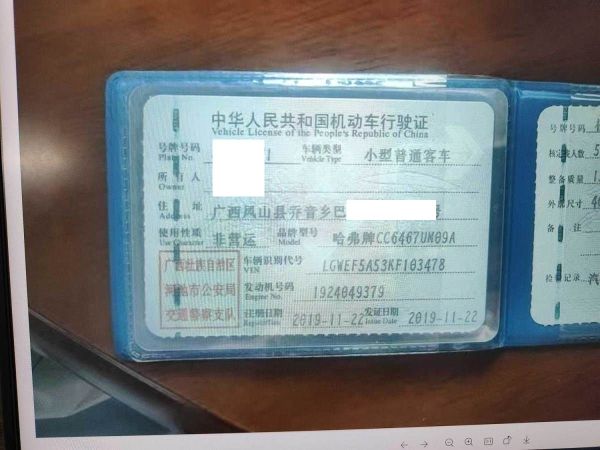 中华人民共和国机动车行驶证
Vehicle License of the People's Republic of China
号牌号码
Plate No.
车辆类型
Vehicle Type
小型普通客车
所有人
Owner
住址
Address
广西凤山县乔音乡巴
号
使用性质
Use Character
非营运
品牌型号
Model
哈弗牌CC6467UM09A
广西壮族自治区
河池市公安局
交通警察支队
车辆识别代号
VIN
LGWEF5A53KF103478
发动机号码
Engine No.
1924049379
注册日期
Register Date
2019-11-22
发证日期
Issue Date
2019-11-22
号牌号码
核定载人数
5
整备质量
1
外廓尺寸
备注
检验记录
汽